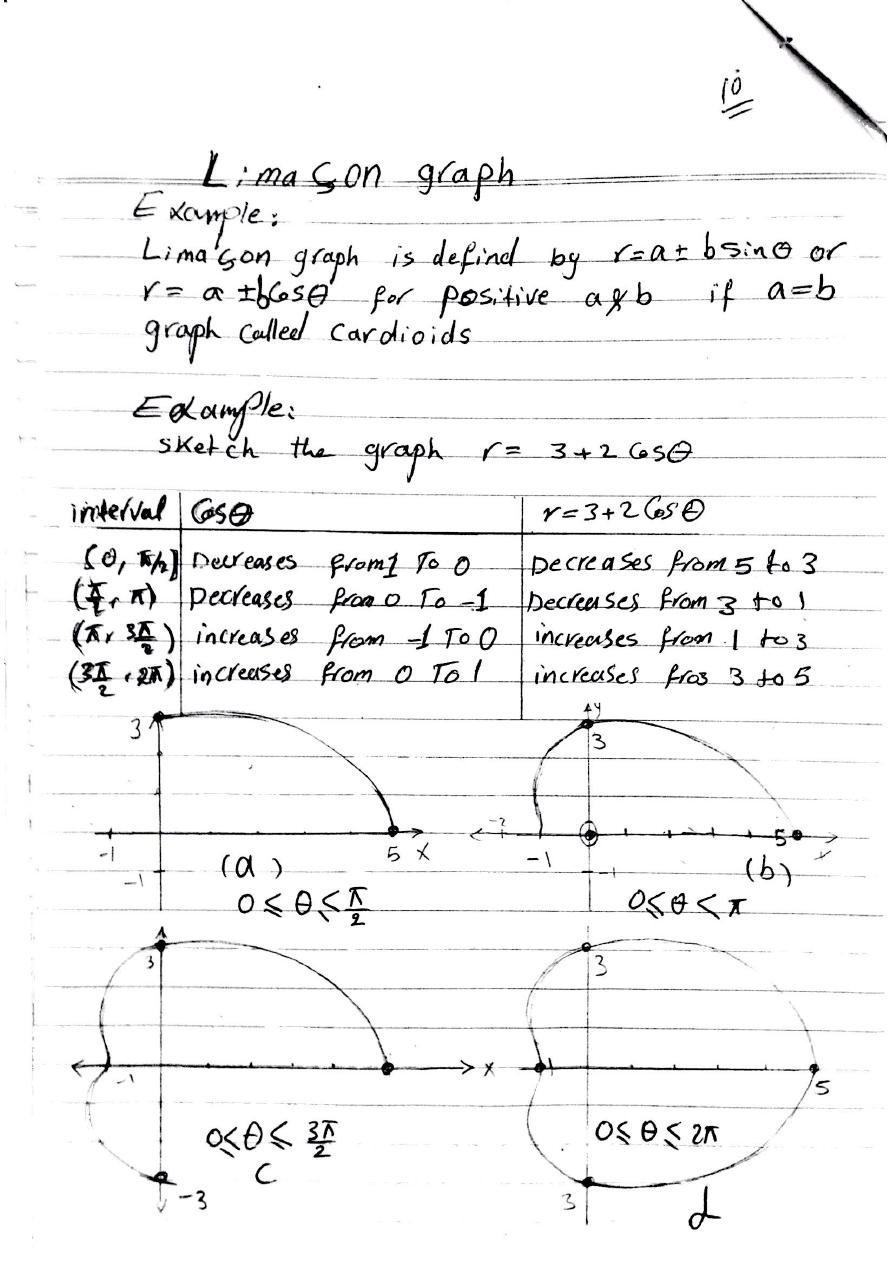 10
Limaçon graph
Example:
Limaçon graph is defind by r=a± bsinθ or
r= a ±bCosθ for positive a&b if a=b
graph Called Cardioids
Example:
sketch the graph r= 3+2 Cosθ
interval Cosθ r=3+2 Cosθ
[0, π/2] Decreases from 1 To 0 Decreases from 5 to 3
(π/2, π) Decreases from 0 To -1 Decreases from 3 to 1
(π, 3π/2) increases from -1 To 0 increases from 1 to 3
(3π/2, 2π) increases from 0 To 1 increases fros 3 to 5
3 -1 -1 5 X
(a)
0 ≤ θ ≤ π/2
y 3 -2 -1 -1 5 x
(b)
0 ≤ θ < π
3 -1 x -3
0 ≤ θ ≤ 3π/2
C
3 -1 5 3
0 ≤ θ ≤ 2π
d